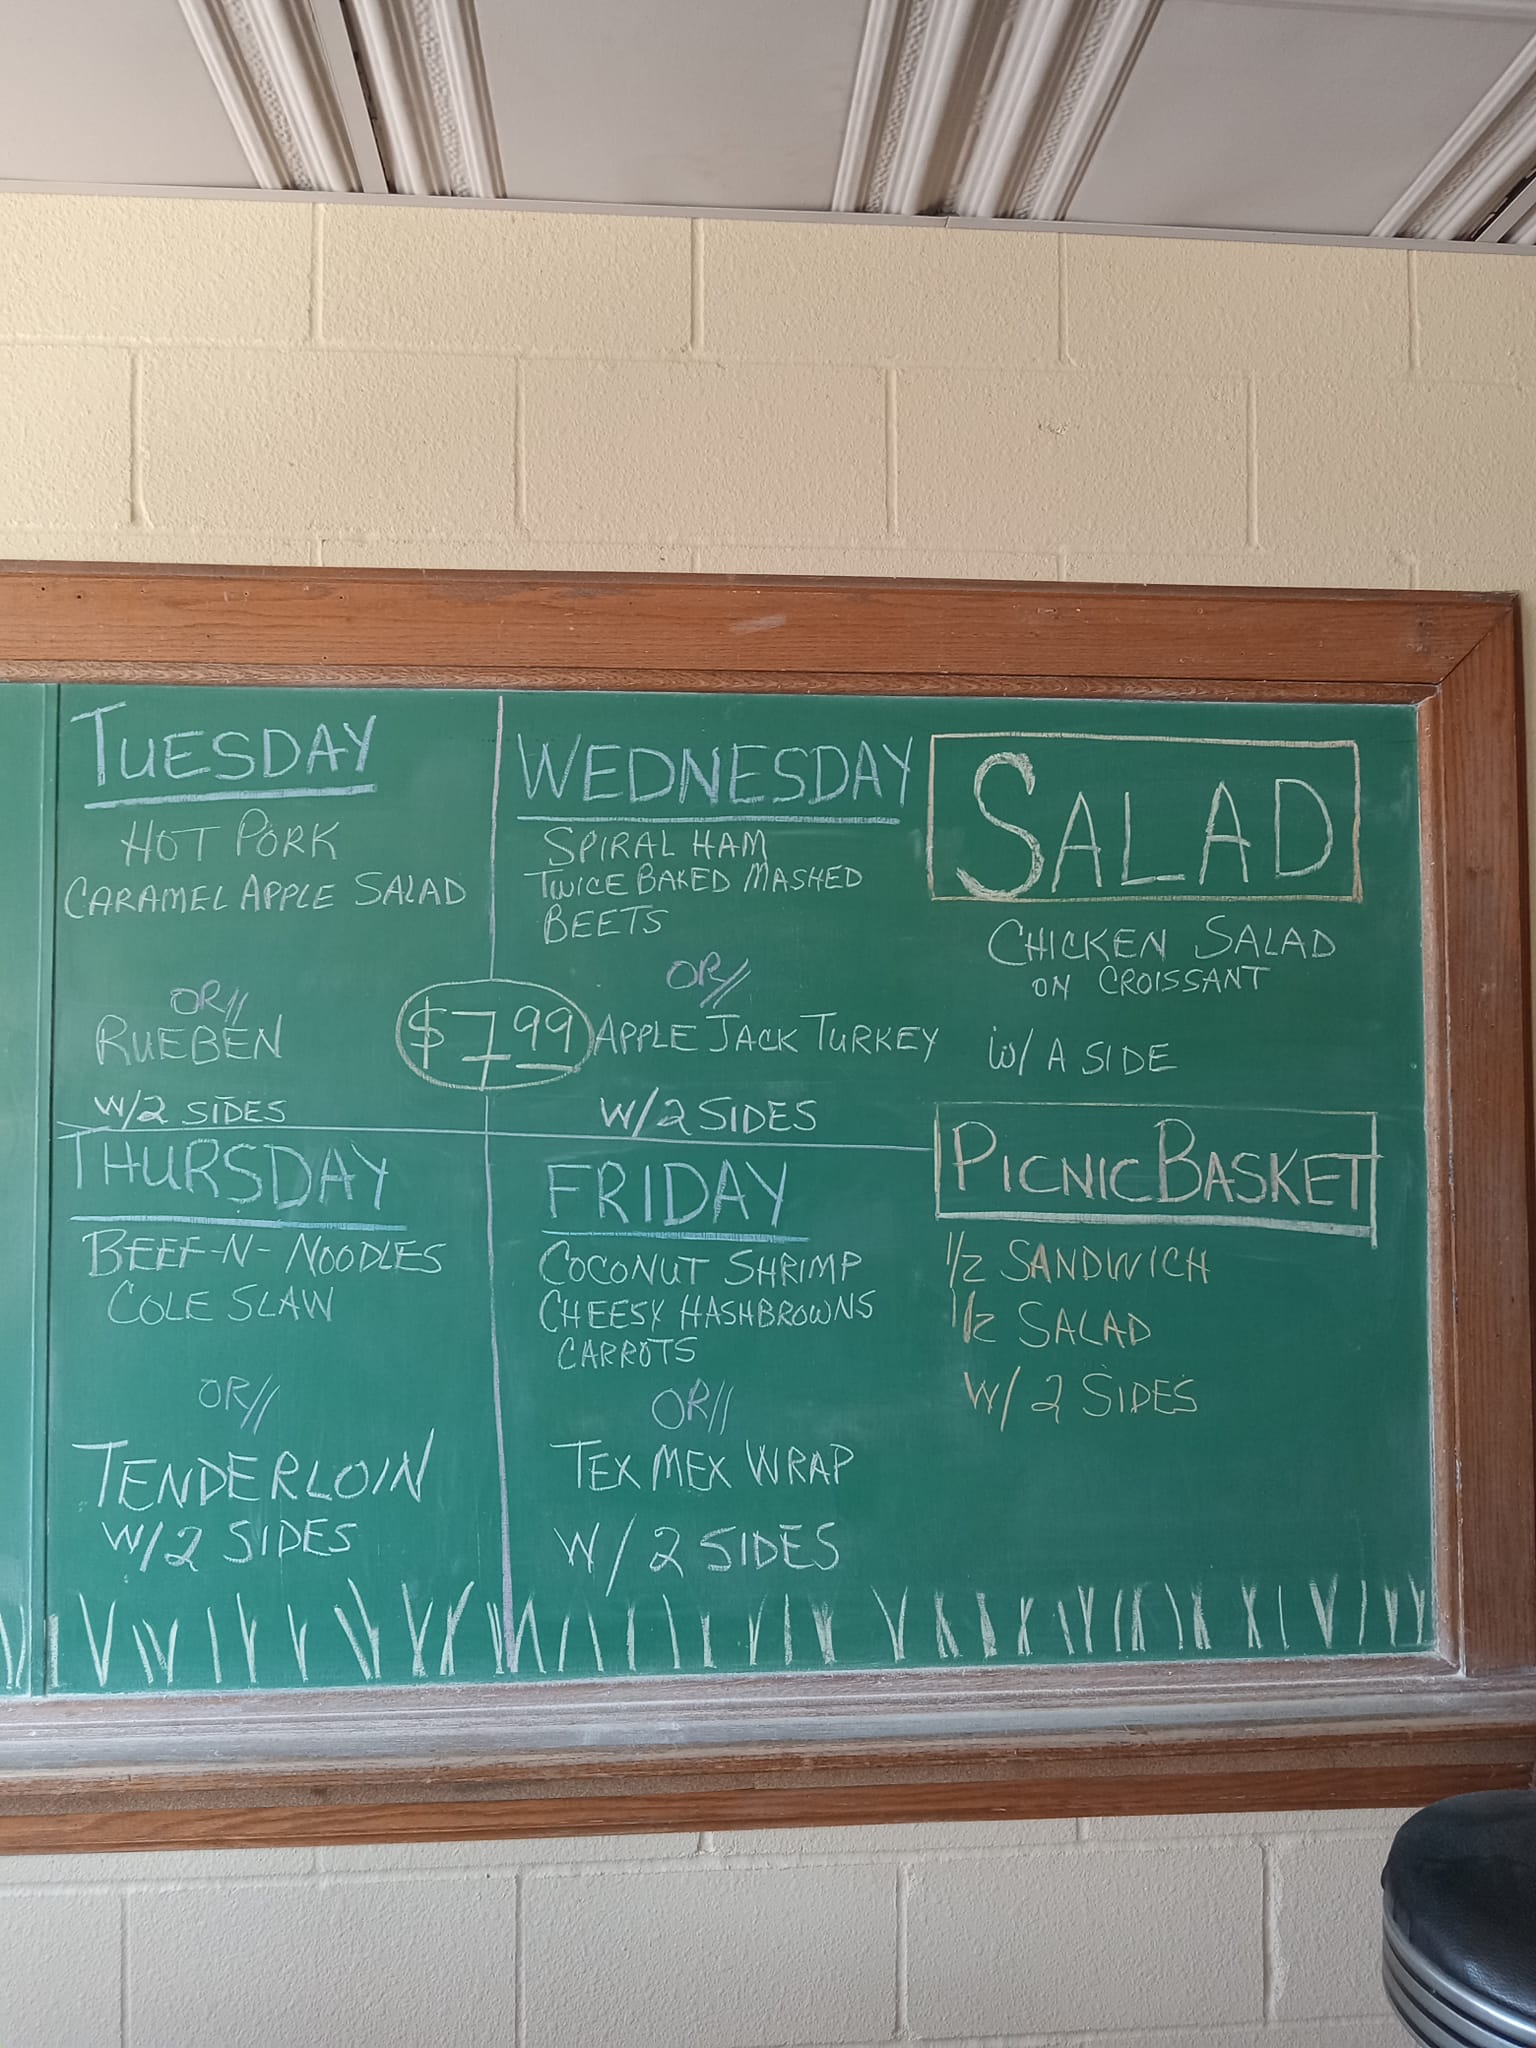 TUESDAY
HOT PORK
CARAMEL APPLE SALAD
OR//
RUEBEN
W/2 SIDES
$7.99
WEDNESDAY
SPIRAL HAM
TWICE BAKED MASHED
BEETS
OR//
APPLE JACK TURKEY
W/2 SIDES
THURSDAY
BEEF-N-NOODLES
COLE SLAW
OR//
TENDERLOIN
W/2 SIDES
FRIDAY
COCONUT SHRIMP
CHEESY HASHBROWNS
CARROTS
OR//
TEX MEX WRAP
W/2 SIDES
SALAD
CHICKEN SALAD
ON CROISSANT
W/ A SIDE
PICNIC BASKET
1/2 SANDWICH
1/2 SALAD
W/ 2 SIDES